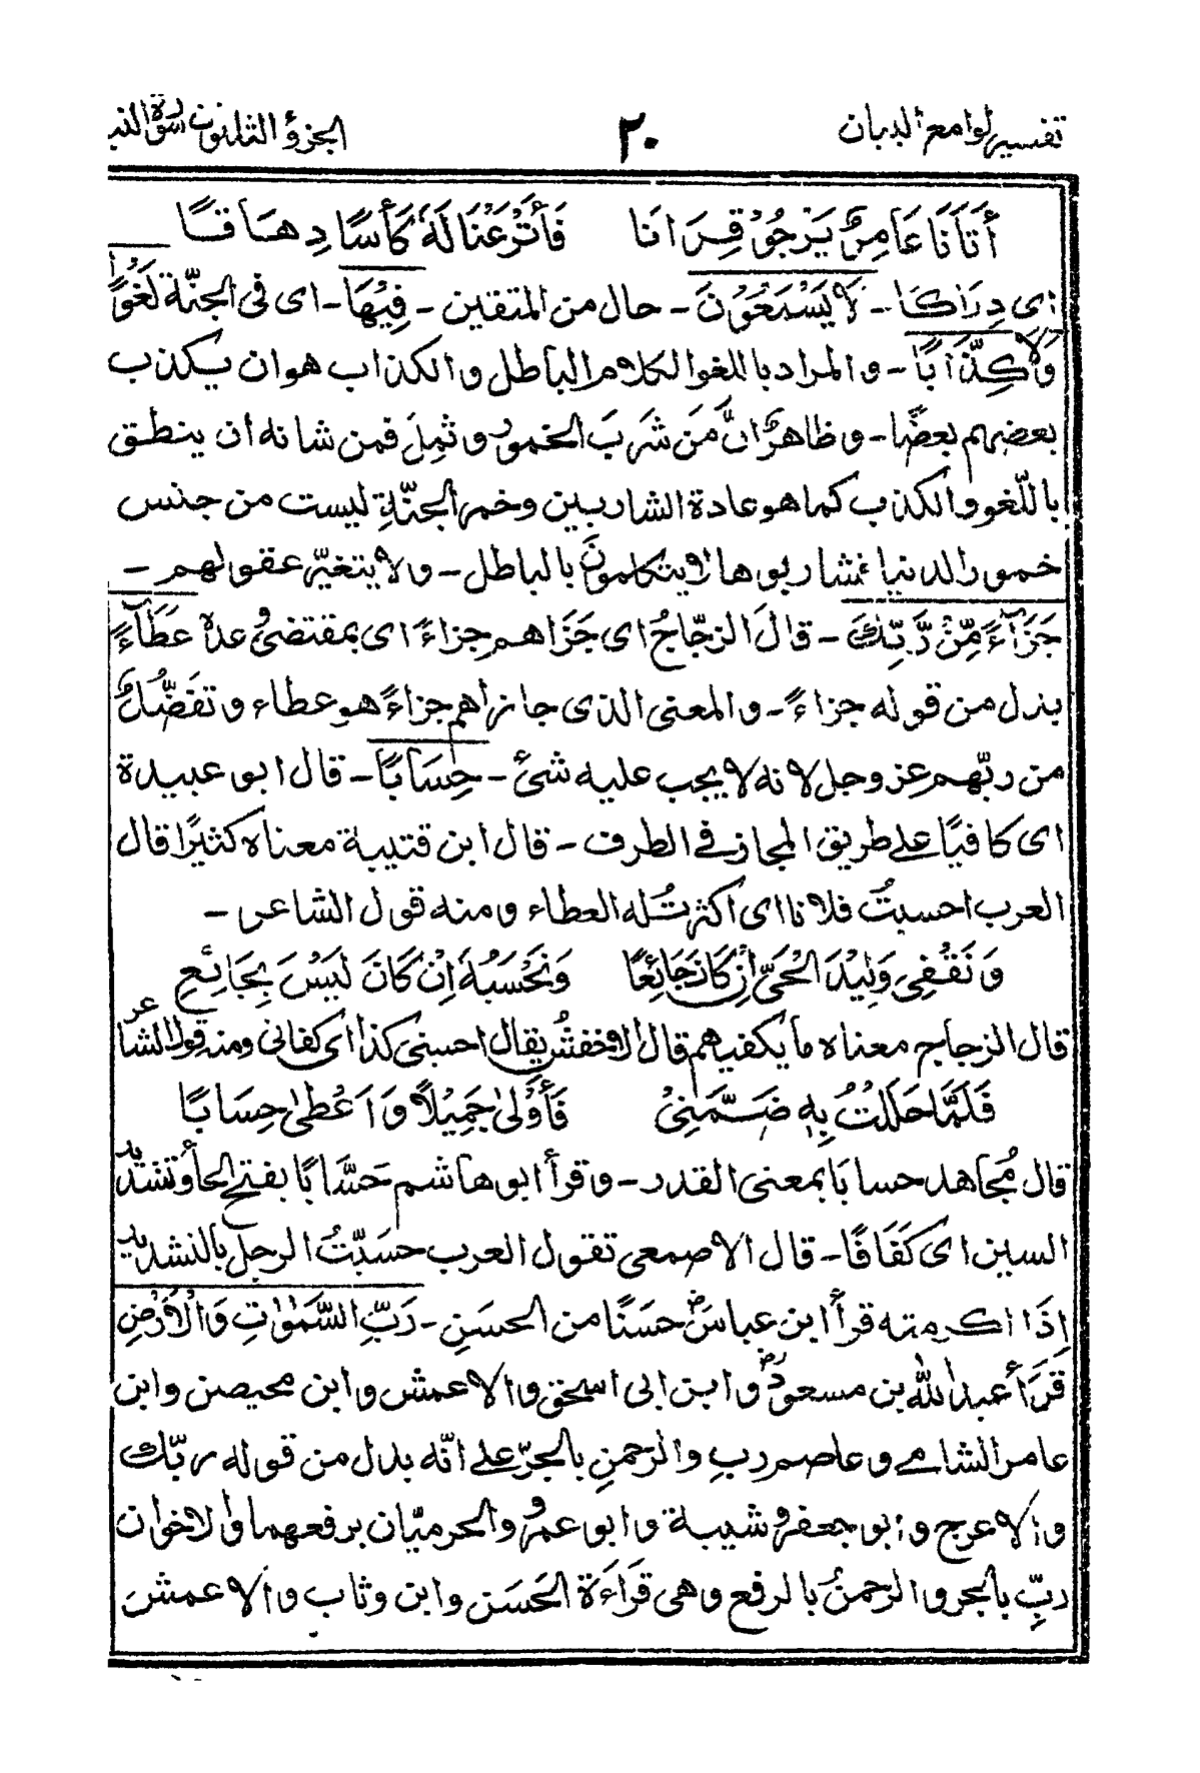 تفسير لوامع البيان ٢٠ الجزؤ الثلثون سورة النبـ
أَتَانَا عَامِرٌ يَرْجُوْ قِرَانَا فَأَتْرَعْنَا لَهٗ كَأْسًا دِهَاقًا
اى دِرَاكًا - لَا يَسْمَعُوْنَ - حال من المتقين - فِيْهَا - اى فى الجنّة لَغْوًا
وَّلَا كِذَّابًا - و المراد باللغو الكلام الباطل و الكذاب هو ان يكذب
بعضهم بعضًا - و ظاهرٌ انَّ مَن شَرِبَ الخمور و ثَمِلَ فمن شانه ان ينطق
باللّغو و الكذب كما هو عادة الشاربين و خمر الجنّةِ ليست من جنس
خمور الدنيا فشاربوها لا يتكلمونَ بالباطل - و لا يتغيّر عقولهم -
جَزَآءً مِّنْ رَّبِّكَ - قالَ الزجّاجُ اى جَزَاهم جزاءً اى بمقتضىٰ وعده عَطَآءً
بدل من قوله جزاءً - و المعنى الذى جازاهم جزاءً هو عطاء و تفضُّلٌ
من ربّهم عز و جل لانه لا يجب عليه شئ - حِسَابًا - قال ابو عبيدة
اى كافيًا على طريق المجاز فى الطرف - قال ابن قتيبة معناه كثيرًا قال
العرب احسبتُ فلانا اى اكثرتُ له العطاء و منه قول الشاعر -
وَ نَقْفِى وَلِيْدَ الْحَىِّ اِنْ كَانَ جَائِعًا وَنُحْسِبُهٗ اِنْ كَانَ لَيْسَ بِجَائِعِ
قال الزجاج معناه ما يكفيهم قال الاخفش يقال احسبنى كذا اى كفانى و منه قول الشاعر
فَلَمَّا حَلَلْتُ بِهٖ ضَمَّنِىْ فَأَوْلٰى جَمِيْلًا وَ اَعْطٰى حِسَابًا
قال مُجاهد حسابًا بمعنى القدر - و قرأ ابو هاشم حَسَّابًا بفتح الحاء و تشديد
السين اى كَفَافًا - قال الاصمعى تقول العرب حسَبَّتُ الرجل بالتشديد
اِذَا اكرمته قرأ ابن عباسؓ حسَنًا من الحسَنِ - رَبِّ السَّمٰوٰتِ وَالْاَرْضِ
قَرَأ عبد الله بن مسعودؓ و ابن ابى اسحٰق و الاعمش و ابن محيصن و ابن
عامر الشامى و عاصم ربِ و الرحمنِ بالجرّ على انّه بدل من قوله ربّك
و الاعرج و ابو جعفر و شيبة و ابو عمرو و الحرميّان برفعهما و الاخوان
ربِّ بالجر و الرحمنُ بالرفع و هى قراءة الحَسَن و ابن وثاب و الاعمش